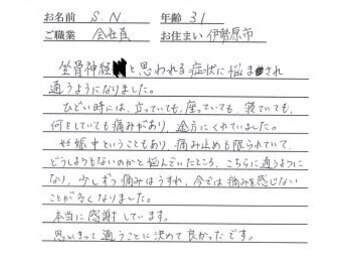 お名前 S.N 年齢 31
ご職業 会社員 お住まい 伊勢原市
坐骨神経 と思われる症状に悩まされ
通うようになりました。
ひどい時には、立っていても、座っていても、寝ていても、
何をしていても痛みがあり、途方にくれていました。
妊娠中ということもあり、痛み止めも限られていて、
どうしようもないのかと悩んでいたところ、こちらに通うように
なり、少しずつ痛みはうすれ、今では痛みを感じない
ことが多くなりました。
本当に感謝しています。
思いきって通うことに決めて良かったです。